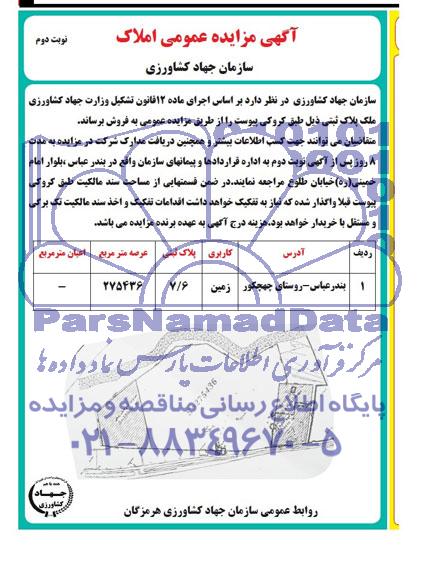 آگهی مزایده عمومی املاک
نوبت دوم
سازمان جهاد کشاورزی
سازمان جهاد کشاورزی در نظر دارد بر اساس اجرای ماده ۱۲قانون تشکیل وزارت جهاد کشاورزی
ملک پلاک ثبتی ذیل طبق کروکی پیوست را از طریق مزایده عمومی به فروش برساند.
متقاضیان می توانند جهت کسب اطلاعات بیشتر و همچنین دریافت مدارک شرکت در مزایده به مدت
۸ روز پس از آگهی نوبت دوم به اداره قراردادها و پیمانهای سازمان واقع در بندر عباس ،بلوار امام
خمینی(ره)خیابان طلوع مراجعه نمایند.در ضمن قسمتهایی از مساحت سند مالکیت طبق کروکی
پیوست قبلا واگذار شده که نیاز به تفکیک خواهد داشت اقدامات تفکیک و اخذ سند مالکیت تک برگی
و مستقل با خریدار خواهد بود.هزینه درج آگهی به عهده برنده مزایده می باشد.
ردیف آدرس کاربری پلاک ثبتی عرصه متر مربع اعیان مترمربع
۱ بندرعباس-روستای چهچکور زمین ۷/۶ ۲۷۵۴۳۶ -
ParsNamadData
مرکز فرآوری اطلاعات پارس نماد داده ها
پایگاه اطلاع رسانی مناقصه و مزایده
۰۲۱-۸۸۳۴۹۶۷۰-۵
جهاد
کشاورزی
روابط عمومی سازمان جهاد کشاورزی هرمزگان